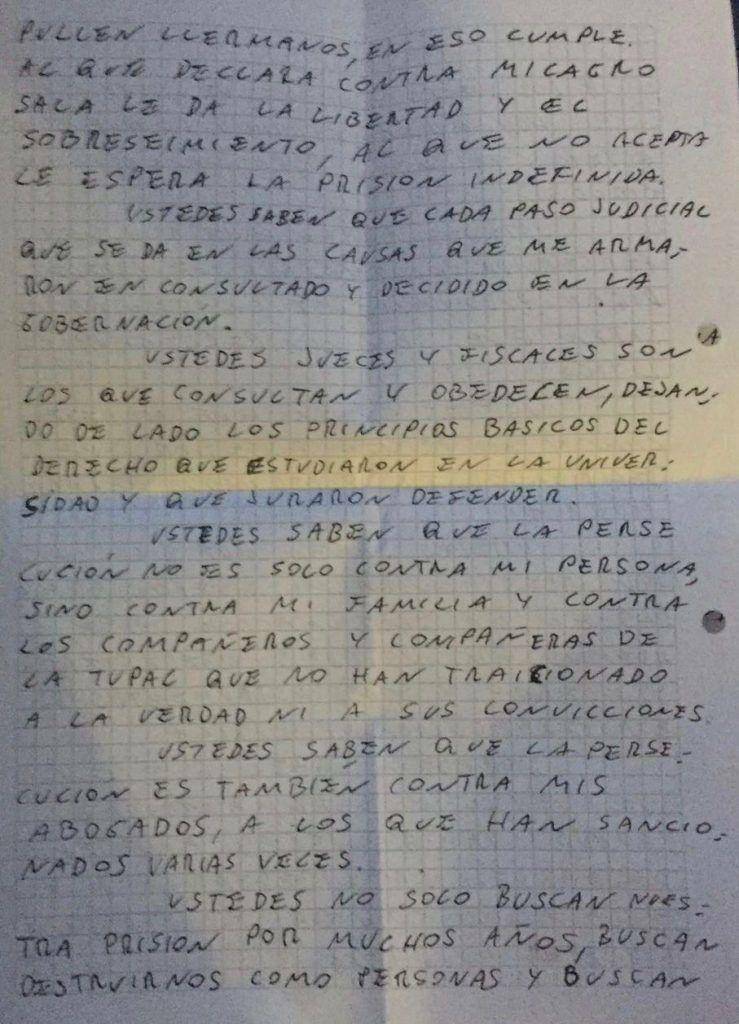 PULLEN LLERMANOS, EN ESO CUMPLE.
AL QUE DECLARA CONTRA MILAGRO
SALA LE DA LA LIBERTAD Y EL
SOBRESEIMIENTO, AL QUE NO ACEPTA
LE ESPERA LA PRISION INDEFINIDA.
USTEDES SABEN QUE CADA PASO JUDICIAL
QUE SE DA EN LAS CAUSAS QUE ME ARMA-
RON EN CONSULTADO Y DECIDIDO EN LA
GOBERNACIÓN.
USTEDES JUECES Y FISCALES SON
LOS QUE CONSULTAN Y OBEDECEN, DEJAN-
DO DE LADO LOS PRINCIPIOS BASICOS DEL
DERECHO QUE ESTUDIARON EN LA UNIVER-
SIDAD Y QUE JURARON DEFENDER.
USTEDES SABEN QUE LA PERSE
CUCIÓN NO ES SOLO CONTRA MI PERSONA,
SINO CONTRA MI FAMILIA Y CONTRA
LOS COMPAÑEROS Y COMPAÑERAS DE
LA TUPAC QUE NO HAN TRAICIONADO
A LA VERDAD NI A SUS CONVICCIONES.
USTEDES SABEN QUE LA PERSE-
CUCIÓN ES TAMBIÉN CONTRA MIS
ABOGADOS, A LOS QUE HAN SANCIO-
NADOS VARIAS VECES.
USTEDES NO SOLO BUSCAN NUES-
TRA PRISION POR MUCHOS AÑOS, BUSCAN
DESTRUIRNOS COMO PERSONAS Y BUSCAN